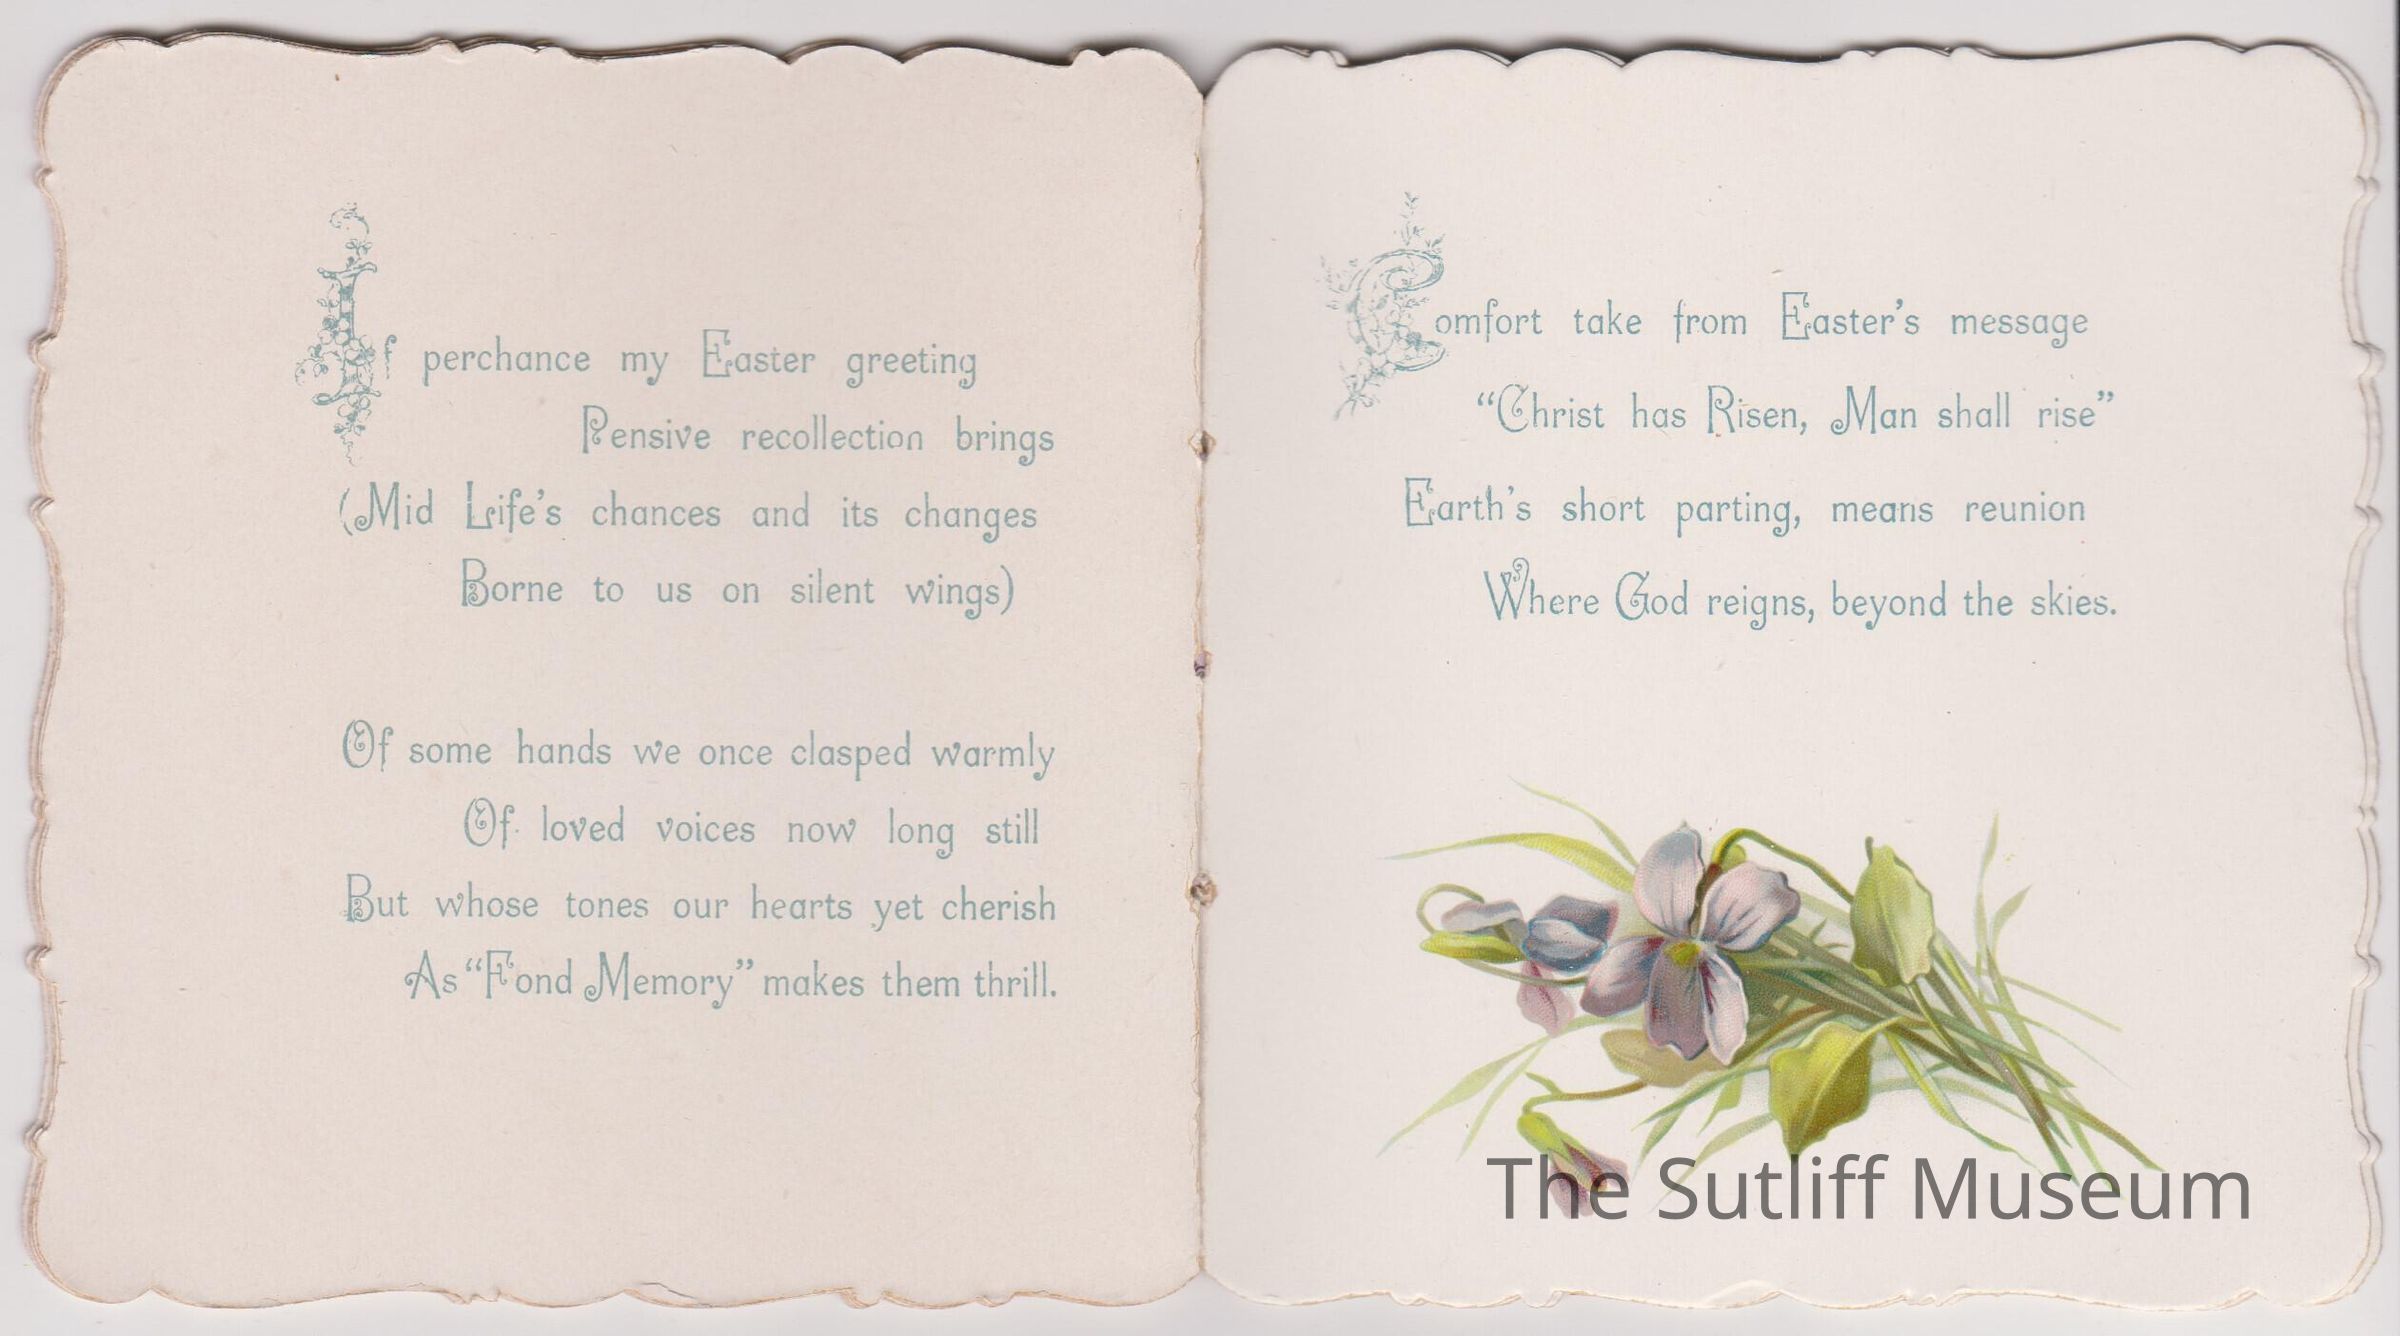 If perchance my Easter greeting
Pensive recollection brings
(Mid Life's chances and its changes
Borne to us on silent wings)
Of some hands we once clasped warmly
Of loved voices now long still
But whose tones our hearts yet cherish
As “Fond Memory” makes them thrill.
Comfort take from Easter's message
“Christ has Risen, Man shall rise”
Earth's short parting, means reunion
Where God reigns, beyond the skies.
The Sutliff Museum